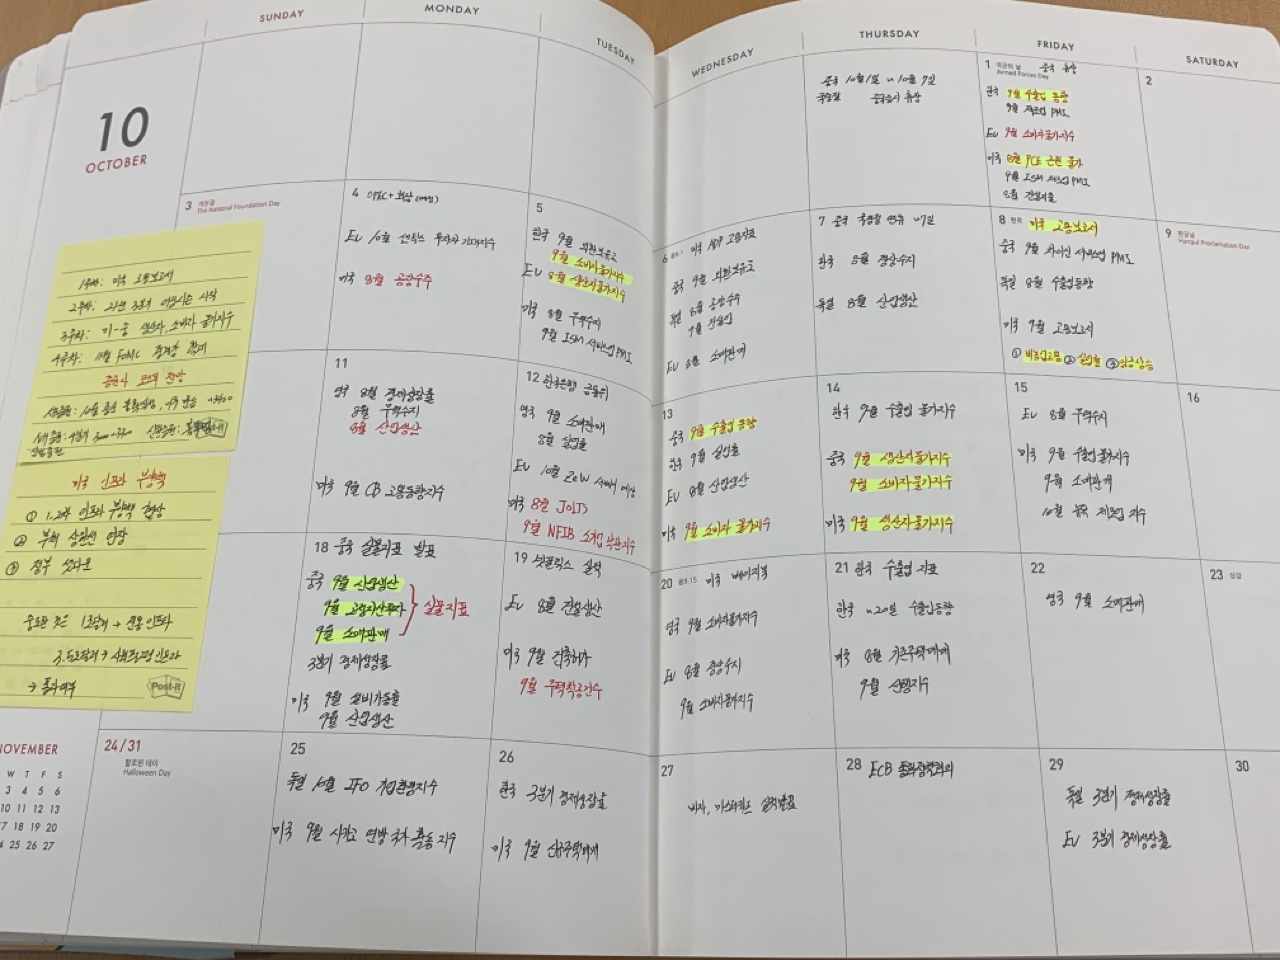 10
OCTOBER
SUNDAY
MONDAY
TUESDAY
WEDNESDAY
THURSDAY
FRIDAY
SATURDAY
중국 10월1일 ~ 10월 7일
국경절 중국증시 휴장
1 국군의 날 Armed Forces Day 중국 휴장
한국 9월 수출입 동향
9월 제조업 PMI
EU 9월 소비자물가지수
미국 8월 PCE 근원 물가
9월 ISM 제조업 PMI
8월 건설지출
2
3 개천절
The National Foundation Day
4 OPEC+ 회담 (예정)
EU 10월 센틱스 투자자 기대지수
미국 8월 공장수주
5
한국 9월 외환보유고
9월 소비자물가지수
EU 8월 생산자물가지수
미국 8월 무역수지
9월 ISM 서비스업 PMI
6 음9.1 미국 ADP 고용지표
중국 9월 외환보유고
독일 8월 공장수주
9월 건설업
EU 8월 소매판매
7 중국 국경절 연휴 ~7일
한국 8월 경상수지
독일 8월 산업생산
8 한로 미국 고용보고서
중국 9월 차이신 서비스업 PMI
독일 8월 수출입동향
미국 9월 고용보고서
① 비농업고용 ② 실업률 ③ 임금상승
9 한글날
Hangul Proclamation Day
1주차: 미국 고용보고서
2주차: 21년 3분기 어닝시즌 시작
3주차: 미-중 생산자, 소비자 물가지수
4주차: 11월 FOMC 경계감 확대
증권사 코스피 전망
1.2조 인프라 부양책 협상
미국 인프라 부양책
② 부채 상한선 연장
③ 정부 셧다운
Post-it
→ 통과여부
Post-it
11
영국 8월 경제성장률
8월 무역수지
8월 산업생산
미국 9월 CB 고용동향지수
12 한국은행 금통위
영국 9월 소매판매
8월 실업률
EU 10월 ZEW 서베이 예상
미국 8월 JOLTS
9월 NFIB 소기업 낙관지수
13
중국 9월 수출입 동향
한국 9월 실업률
EU 8월 산업생산
미국 9월 소비자 물가지수
14
한국 9월 수출입 물가지수
중국 9월 생산자물가지수
9월 소비자물가지수
미국 9월 생산자물가지수
15
EU 8월 무역수지
미국 9월 수출입물가지수
9월 소매판매
10월 뉴욕 제조업 지수
16
18 중국 실물지표 발표
중국 9월 산업생산
9월 고정자산투자
9월 소매판매
실물지표
3분기 경제성장률
미국 9월 설비가동률
9월 산업생산
19 넷플릭스 실적
EU 8월 건설생산
미국 9월 건축허가
9월 주택착공건수
20 음9.15 미국 베이지북
영국 9월 소비자물가지수
EU 8월 경상수지
9월 소비자물가지수
21 한국 수출입 지표
한국 ~20일 수출입동향
미국 8월 기존주택매매
9월 선행지수
22
영국 9월 소매판매
23 상강
24/31
할로윈 데이
Halloween Day
25
독일 10월 IFO 기업환경지수
미국 9월 시카고 연방 국가 활동 지수
26
한국 3분기 경제성장률
미국 9월 신규주택매매
27
비자, 마스터카드 실적발표
28 ECB 통화정책회의
29
독일 3분기 경제성장률
EU 3분기 경제성장률
30
NOVEMBER
W T F S
3 4 5 6
10 11 12 13
17 18 19 20
24 25 26 27